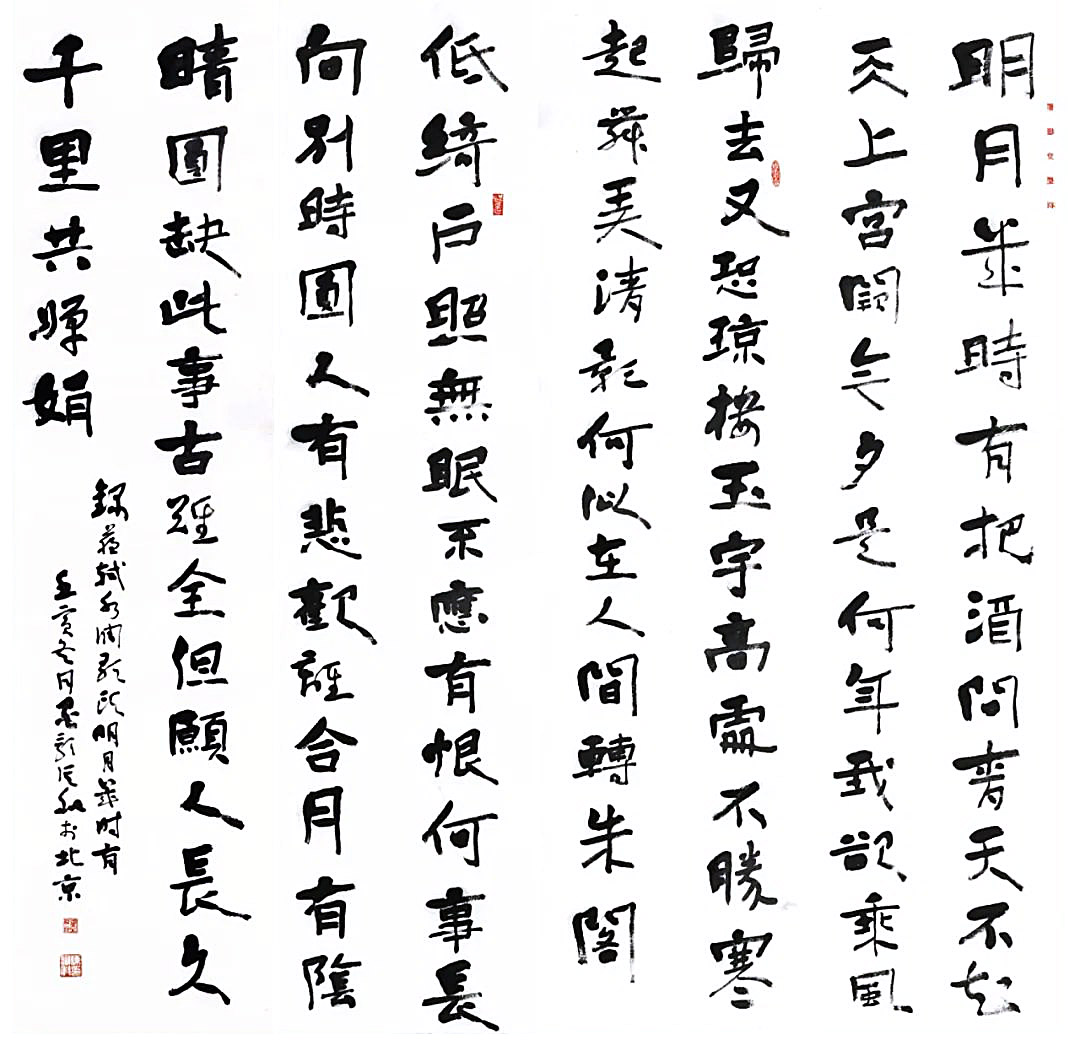 明月幾時有把酒問青天不知
天上宮闕今夕是何年我欲乘風
歸去又恐琼樓玉宇高處不勝寒
起舞弄清影何似在人間轉朱閣
低綺户照無眠不應有恨何事長
向别時圓人有悲歡離合月有陰
晴圓缺此事古難全但願人長久
千里共嬋娟
録蘇軾水調歌頭明月幾时有
寅冬月墨於北京